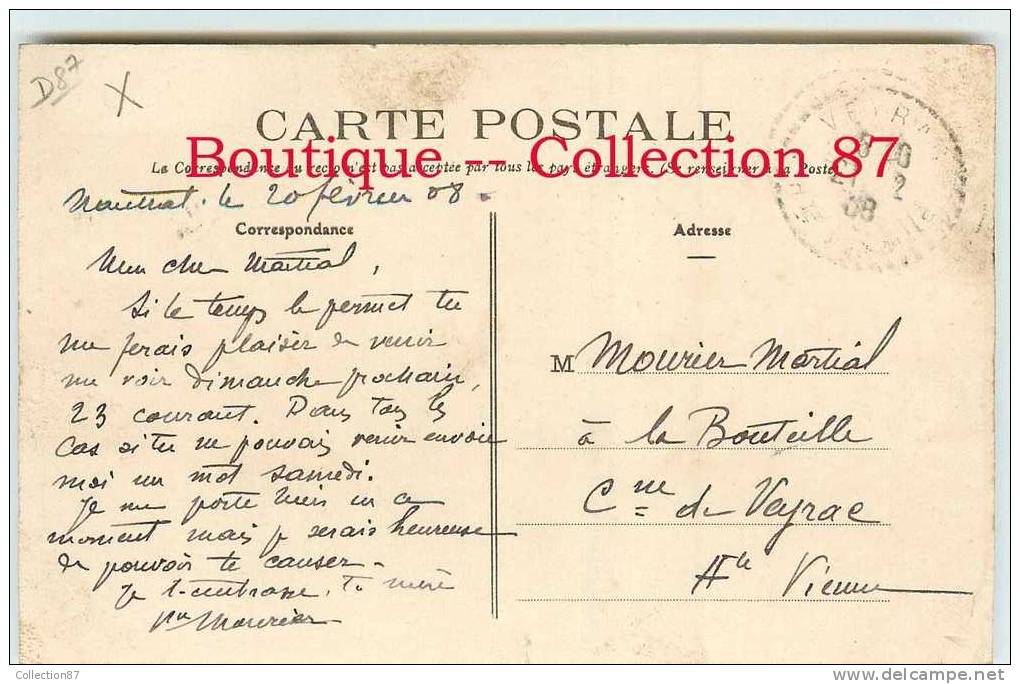 D87
X
CARTE POSTALE
Boutique -- Collection 87
La Correspondance au recto n'est pas acceptée par tous les pays étrangers. (Se renseigner à la Poste)
le 20 février 08.
Correspondance
Adresse
VEYRA
2
08
Mon cher Martial,
Si le temps le permet tu
me ferais plaisir de venir
me voir dimanche prochain,
23 courant. Dans tous les
cas si tu ne pouvais venir envoie
moi un mot samedi.
Je me porte bien en ce
moment mais je serais heureuse
de pouvoir te causer.
Je t'embrasse, ta mère
Vve Mourier
M Mourier Martial
à la Bouteille
Cne de Veyrac
Hte Vienne
Collection87
delcampe.net